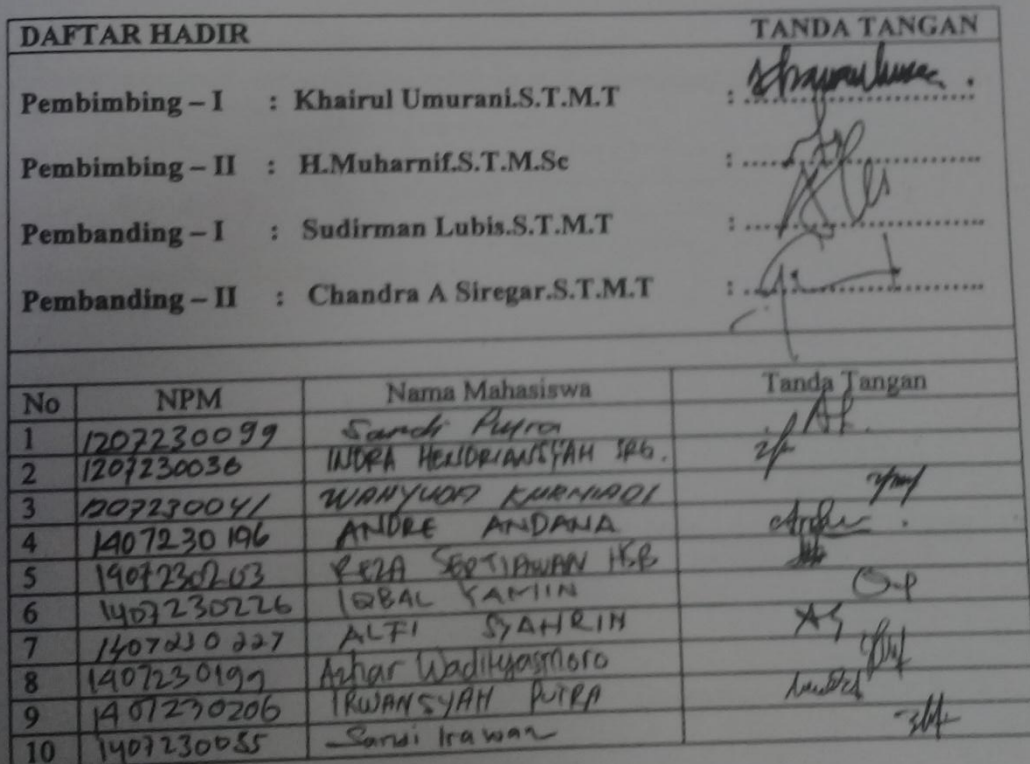 DAFTAR HADIR TANDA TANGAN
Pembimbing – I : Khairul Umurani.S.T.M.T : ....................
Pembimbing – II : H.Muharnif.S.T.M.Sc : ....................
Pembanding – I : Sudirman Lubis.S.T.M.T : ....................
Pembanding – II : Chandra A Siregar.S.T.M.T : ....................
No NPM Nama Mahasiswa Tanda Tangan
1 1207230099 Sandi Putra
2 1207230036 INDRA HENDRIANSYAH SRG.
3 1207230041 WAHYUDI KURNIADI
4 1407230196 ANDRE ANDANA
5 1407230203 REZA SEPTIAWAN HSB
6 1407230226 IQBAL YAMIN
7 1407230227 ALFI SYAHRIN
8 1407230199 Azhar
9 1407230206 IRWANSYAH PUTRA
10 1407230055 Sandi Irawan